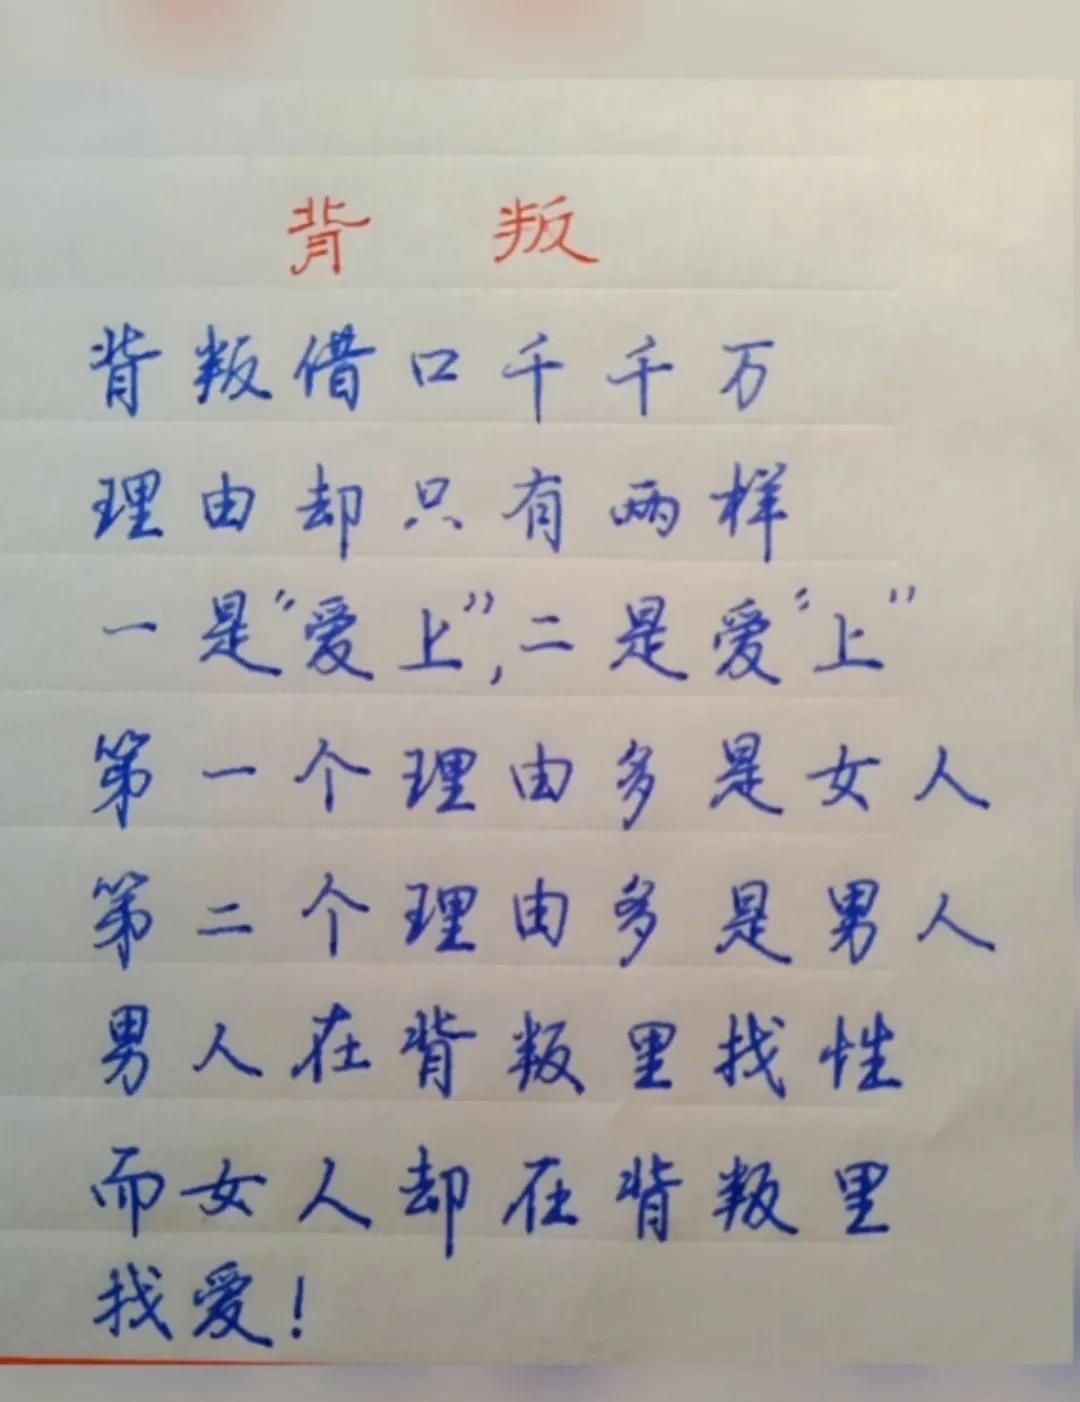 背叛
背叛借口千千万
理由却只有两样
一是“爱上”,二是爱“上”
第一个理由多是女人
第二个理由多是男人
男人在背叛里找性
而女人却在背叛里
找爱!